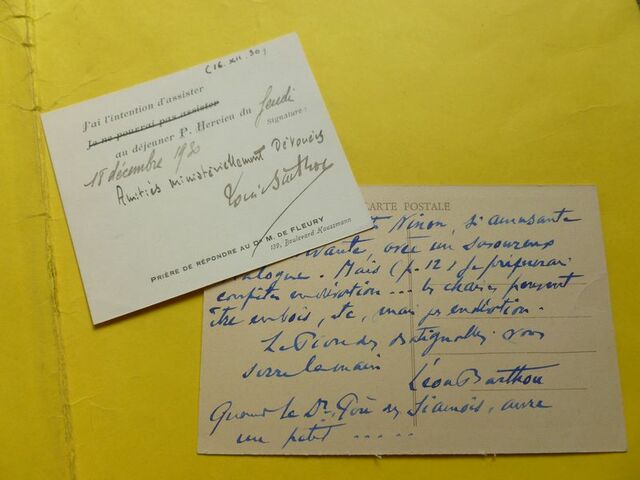 (16. XII. 30)
J'ai l'intention d'assister
Je ne pourrai pas assister
au déjeuner P. Hervieu du Jeudi
18 décembre 1930
Signature :
Amitiés ministériellement Dévouées
Louis Barthou
PRIÈRE DE RÉPONDRE AU Dr M. DE FLEURY
139, Boulevard Haussmann
CARTE POSTALE
Ninon, si amusante
avec un savoureux
Mais (p. 12) je
en dévotion ... les chaises peuvent
être en bois, etc, mais pas en dévotion.
Le Batignolles vous
serre la main
Léon Barthou
Quand le Dr, Siamois, aura
un petit .....